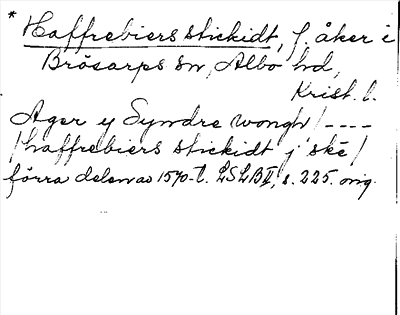 * Haffrebiers stickidt, f. åker i
Brösarps sn, Albo hd,
Krist. l.
Ager y Syndre wongh / ----
/ haffrebiers stickidt j skè /
förra delen av 1570-t. LSLBII, s. 225. orig.